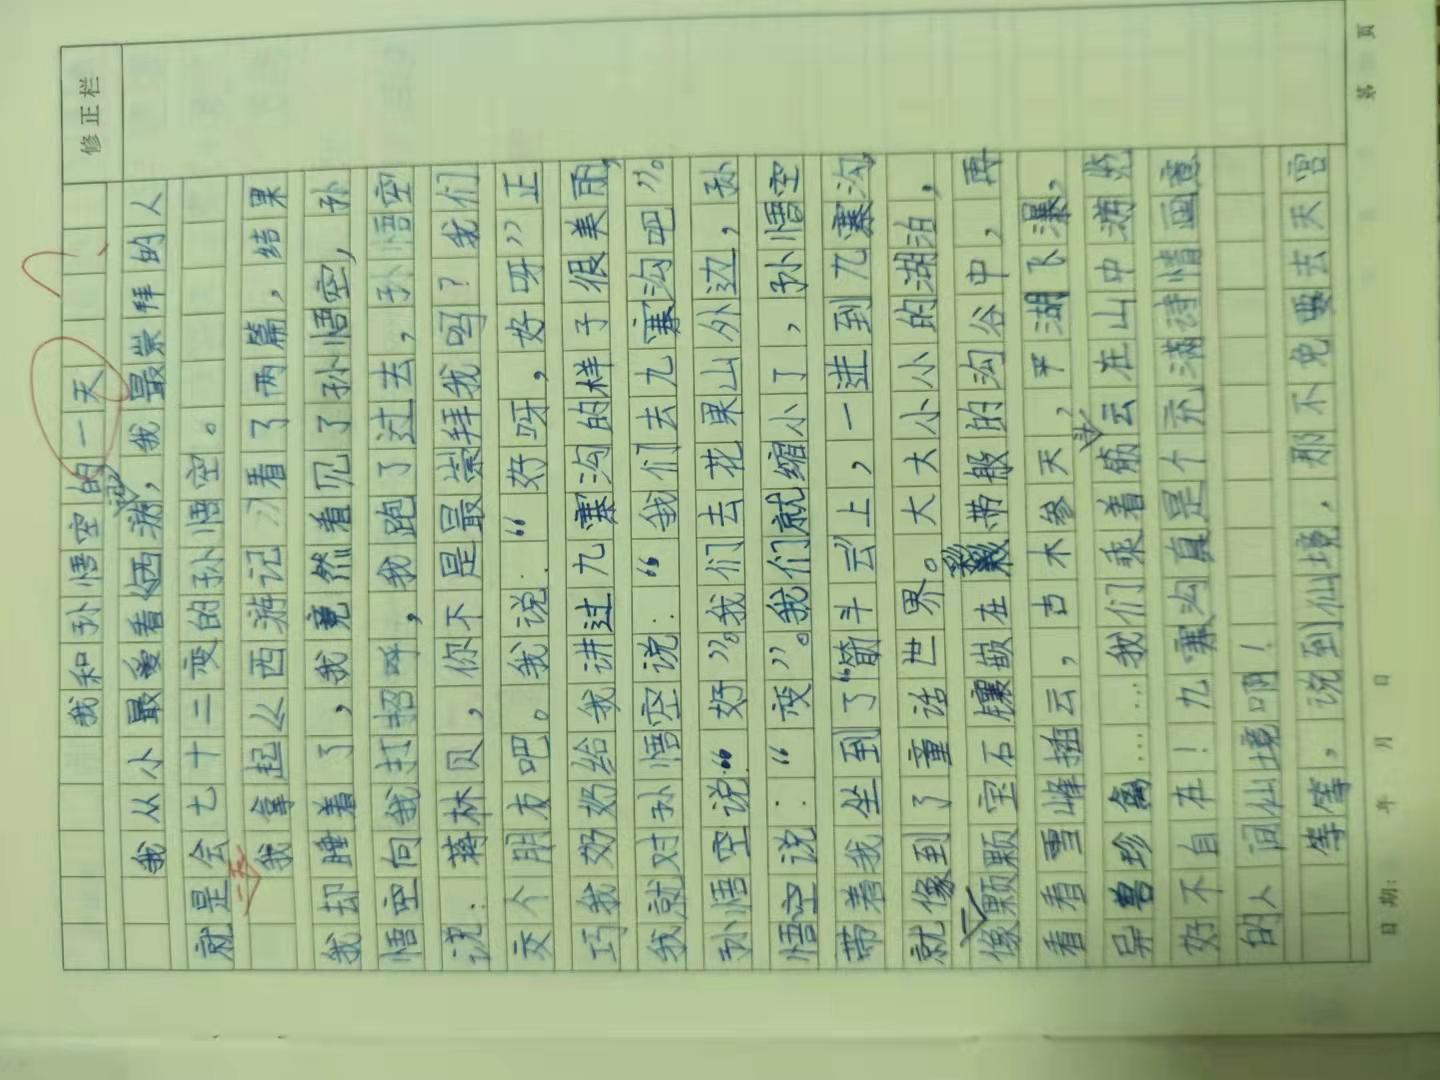 修正栏
我和孙悟空的一天
我从小最爱看《西游记》,我最崇拜的人
就是会七十二变的孙悟空。
我拿起《西游记》看了两篇,结果
我却睡着了,我竟然看见了孙悟空,孙
悟空向我打招呼,我跑了过去,孙悟空
说:蒋林贝,你不是最崇拜我吗?我们
交个朋友吧。我说:“好呀,好呀”正
巧我奶奶给我讲过九寨沟的样子很美丽,
我就对孙悟空说:“我们去九寨沟吧”。
孙悟空说:“好”。我们去花果山外边,孙
悟空说:“变”。我们就缩小了,孙悟空
带着我坐到了“筋斗云”上,一进到九寨沟,
就像到了童话世界。大大小小的湖泊,
像颗颗宝石镶嵌在彩带般的沟谷中,再
看看雪峰插云,古木参天,平湖飞瀑,
异兽珍禽……我们乘着筋斗云在山中游览
好不自在!九寨沟真是个充满诗情画意
的人间仙境啊!
等等,说到仙境,那不免要去天宫
日期: 年 月 日
第 页